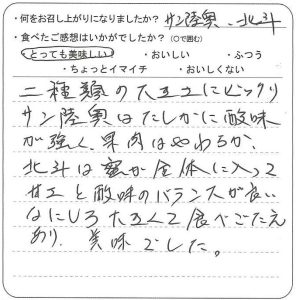 ・何をお召し上がりになりましたか？ サン陸奥、北斗
・食べたご感想はいかがでしたか？（○で囲む）
・とっても美味しい ・おいしい ・ふつう
・ちょっとイマイチ ・おいしくない
二種類の大玉にビックリ
サン陸奥はたしかに酸味
が強く、果肉はやわらか、
北斗は蜜が全体に入って
甘エと酸味のバランスが良い
なにしろ大玉で食べごたえ
あり、美味でした。